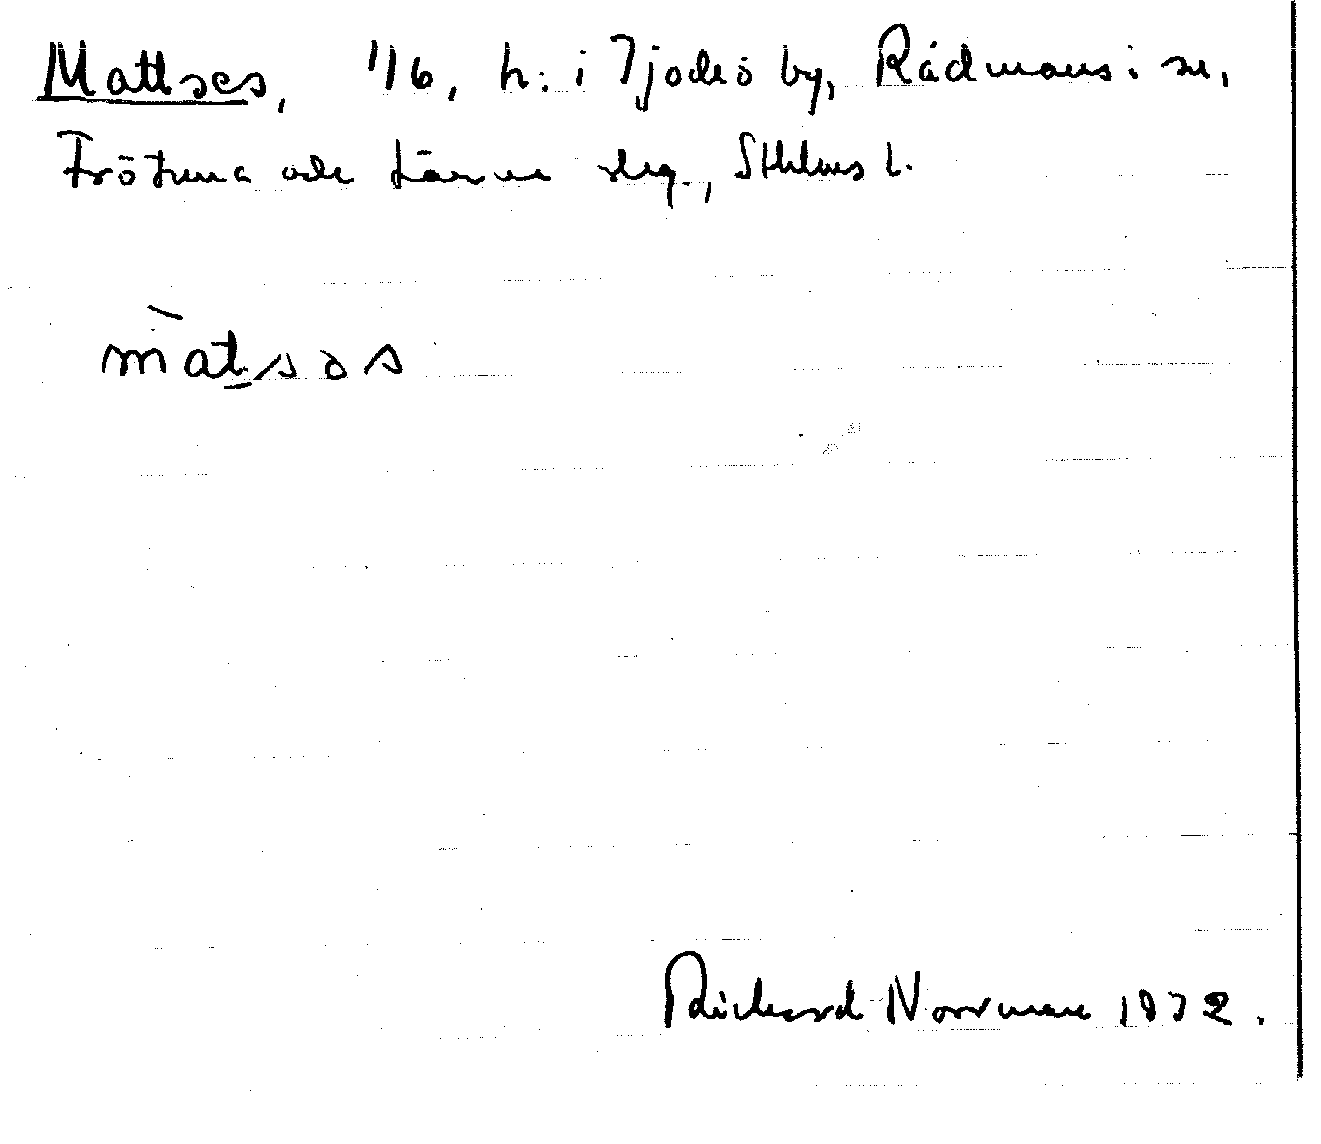 Mattses, 1/6, h. i Tjockö by, Rådmansö sn,
Frötuna och Länna slg., Sthlms l.
màtsəs
Rickard Norrman 1932.